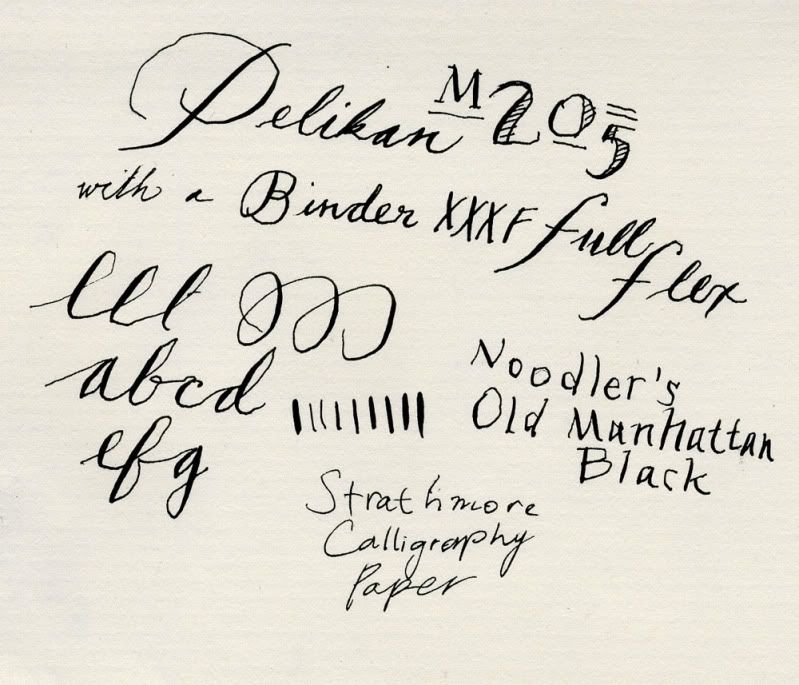 Pelikan M205
with a Binder XXXF full flex
lll
abcd
efg
Noodler's
Old Manhattan
Black
Strathmore
Calligraphy
Paper